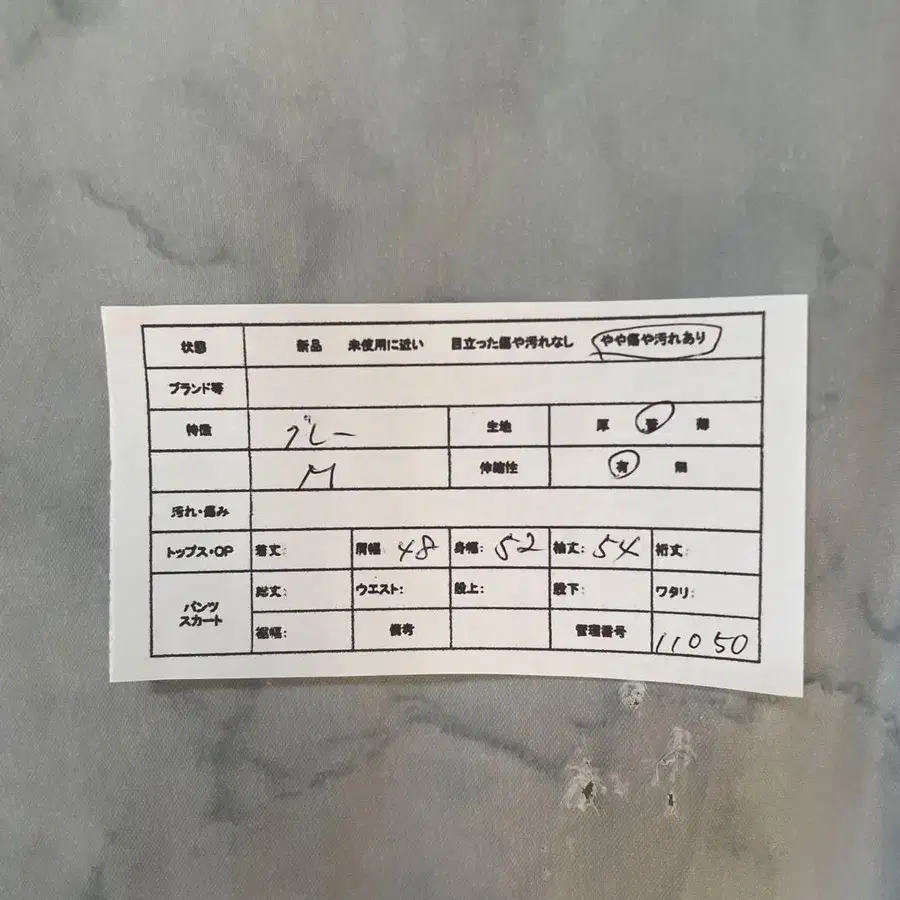 状態 新品 未使用に近い 目立った傷や汚れなし やや傷や汚れあり
ブランド等
特徴 グレー 生地 厚 普 薄
M 伸縮性 有 無
汚れ・傷み
トップス・OP 着丈: 肩幅: 48 身幅: 52 袖丈: 54 裄丈:
パンツ スカート 総丈: ウエスト: 股上: 股下: ワタリ:
裾幅: 備考 管理番号 11050